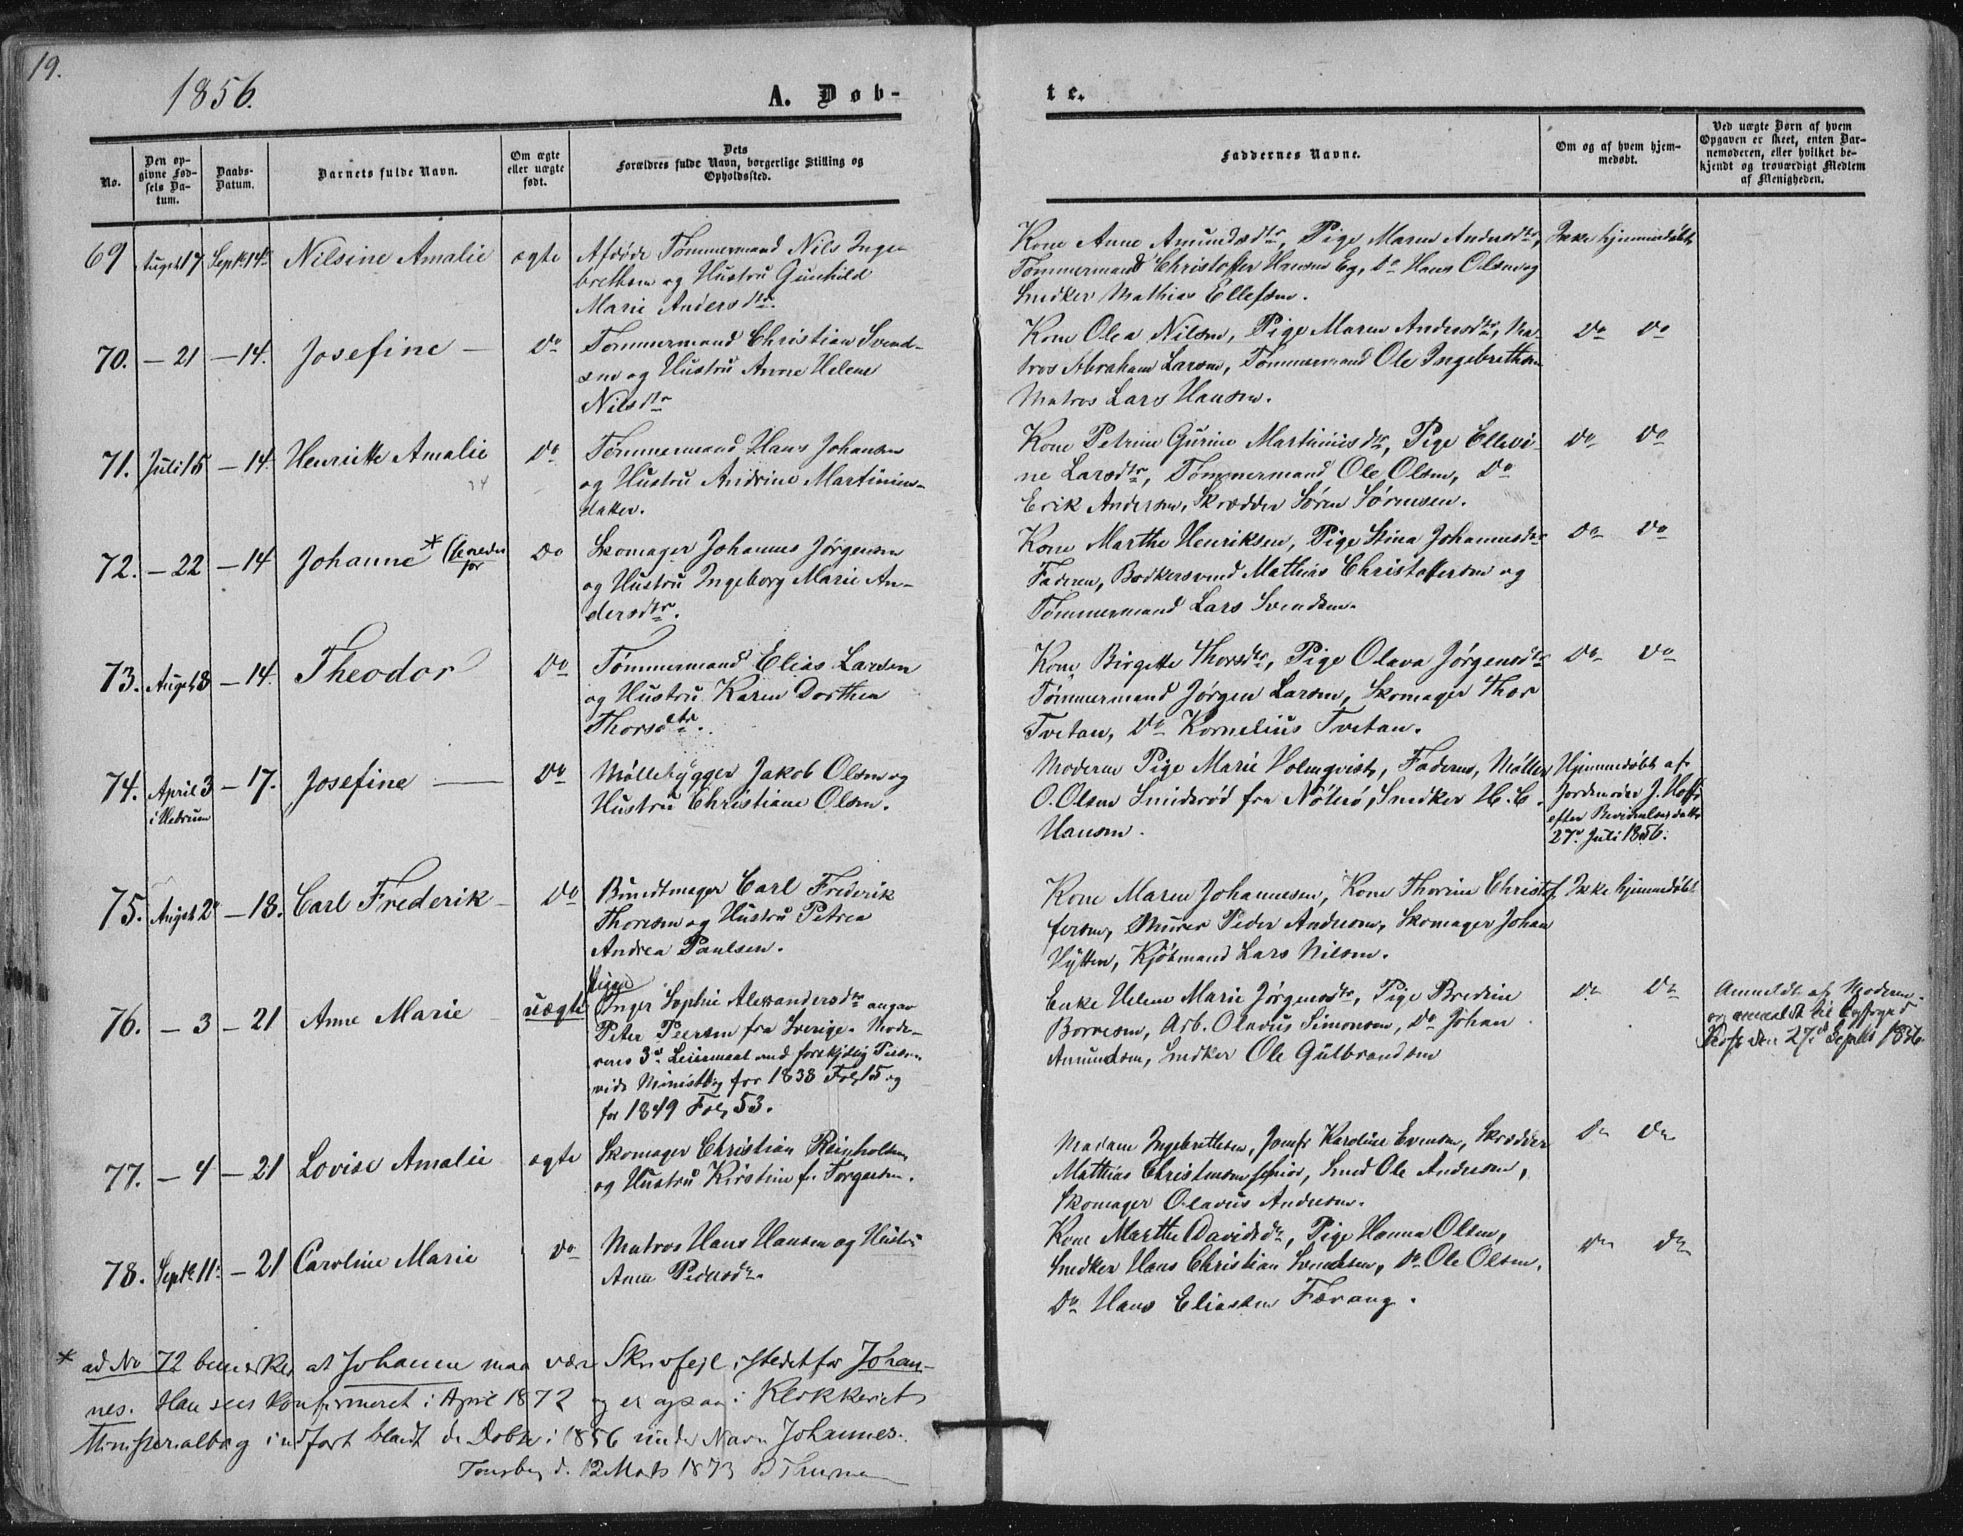 19.
1856.
A. Døb-
te.
No.
Den op-
givne Fød-
sels Da-
tum.
Daabs-
Datum.
Barnets fulde Navn.
Om ægte
eller uægte
født.
Dets
Forældres fulde Navn, borgerlige Stilling og
Opholdssted.
Faddernes Navne.
Om og af hvem hjem-
medøbt.
Ved uægte Børn af hvem
Opgaven er skeet, enten Bar-
nemoderen, eller hvilket be-
kjendt og troværdigt Medlem
af Menigheden.
69 August 17 Septbr 14de Nilsine Amalie ægte Afdøde Tømmermand Nils Inge-
brethsen og Hustru Gunhild
Marie Andersdtr.
Kone Anne Amundsdtr, Pige Maren Andersdtr,
Tømmermand Christoffer Hansen Eg, Do Hans Olsen og
Snedker Mathias Ellefsen.
Ikke hjemmedøbt
70. — 21 — 14. Josefine — Do Tømmermand Christian Svend-
sen og Hustru Anne Helene
Nilsdtr
Kone Olea Nilsen, Pige Maren Andersdtr, Ma-
tros Abraham Larsen, Tømmermand Ole Ingebrethsen
Matros Lars Hansen.
Do Do
71. Juli 15 — 14. Henriette Amalie Do Tømmermand Hans Johansen
og Hustru Andrine Martinius-
datter.
Kone Petrine Gurine Martinisdtr, Pige Ellevi-
ne Larsdtr, Tømmermand Ole Olsen, Do
Erik Andersen, Skrædder Søren Sørensen.
Do Do
72. — 22 — 14 Johanne* (se neden
for Do Skomager Johannes Jørgensen
og Hustru Ingeborg Marie An-
dersdtr.
Kone Marthe Henriksen, Pige Stina Johannesdtr
Faderen, Bødkersvend Mathias Christoffersen og
Tømmermand Lars Svendsen.
Do Do
73. August 8 — 14. Theodor Do Tømmermand Elias Larsen
og Hustru Karen Dorthea
Thorsdtr.
Kone Birgitte Thorsdtr, Pige Olava Jørgensdtr
Tømmermand Jørgen Larsen, Skomager Thor
Tvetan, Do Kornelius Tvetan.
Do Do
74. April 3
i Hedrum — 17. Josefine — Do Møllebygger Jakob Olsen og
Hustru Christiane Olsen.
Moderen Pige Marie Holmqvist, Faderen, Møller
O. Olsen Smidsrød fra Nøterø, Snedker H. C.
Hansen.
Hjemmedøbt af
Jordemoder J. Hoff
efter
27de Juli 1856.
75. August 2 — 18. Carl Frederik Do Bundtmager Carl Frederik
Thoresen og Hustru Petrea
Andrea Paulsen.
Kone Maren Johannesen, Kone Thorine Christof-
fersen, Murer Peder Andersen, Skomager Johan
Hytten, Kjøbmand Lars Nilsen.
Ikke hjemmedøbt
76. — 3 — 21 Anne Marie uægte Pige
Inger Sophie Alexandersdtr angav
Peter Peersen fra Sverige. Mode-
rens 3de Leiermaal med forskjellig Person
vide Ministbg for 1838 Fol. 15 og
for 1849 Fol. 53.
Enke Helene Marie Jørgensdtr, Pige Bredine
Borresen, Arb. Olavus Simonsen, Do Johan
Amundsen, Snedker Ole Gulbrandsen
Do Do
Anmeldt af Moderen
og anmeldt til Byfoged
den 27d Septbr 1856.
77. — 4 — 21 Lovise Amalie ægte Skomager Christian Reinholdsen
og Hustru Kirstine f. Torgersen.
Madam Ingebrethsen, Jomfr Karoline Evensen, Skrædder
Matthias Christensen senior, Smed Ole Andersen,
Skomager Olavus Andersen.
Do Do
78. Septbr 11 — 21 Caroline Marie Do Matros Hans Hansen og Hustru
Anne Pedersdtr.
Kone Marthe Davidsdtr, Pige Hanna Olsen,
Snedker Hans Christian Svendsen, Do Ole Olsen,
Do Hans Eliassen Færang.
Do Do
* ad No 72 bemærkes at Johanne maa være Skrivfejl istedetfor Johan-
nes. Han sees Konfirmeret i April 1872 og er ogsaa i Klokkeriets
Ministerialbog indført blandt de Døbte i 1856 under Navn Johannes.
Tønsberg d. 12 Marts 1873